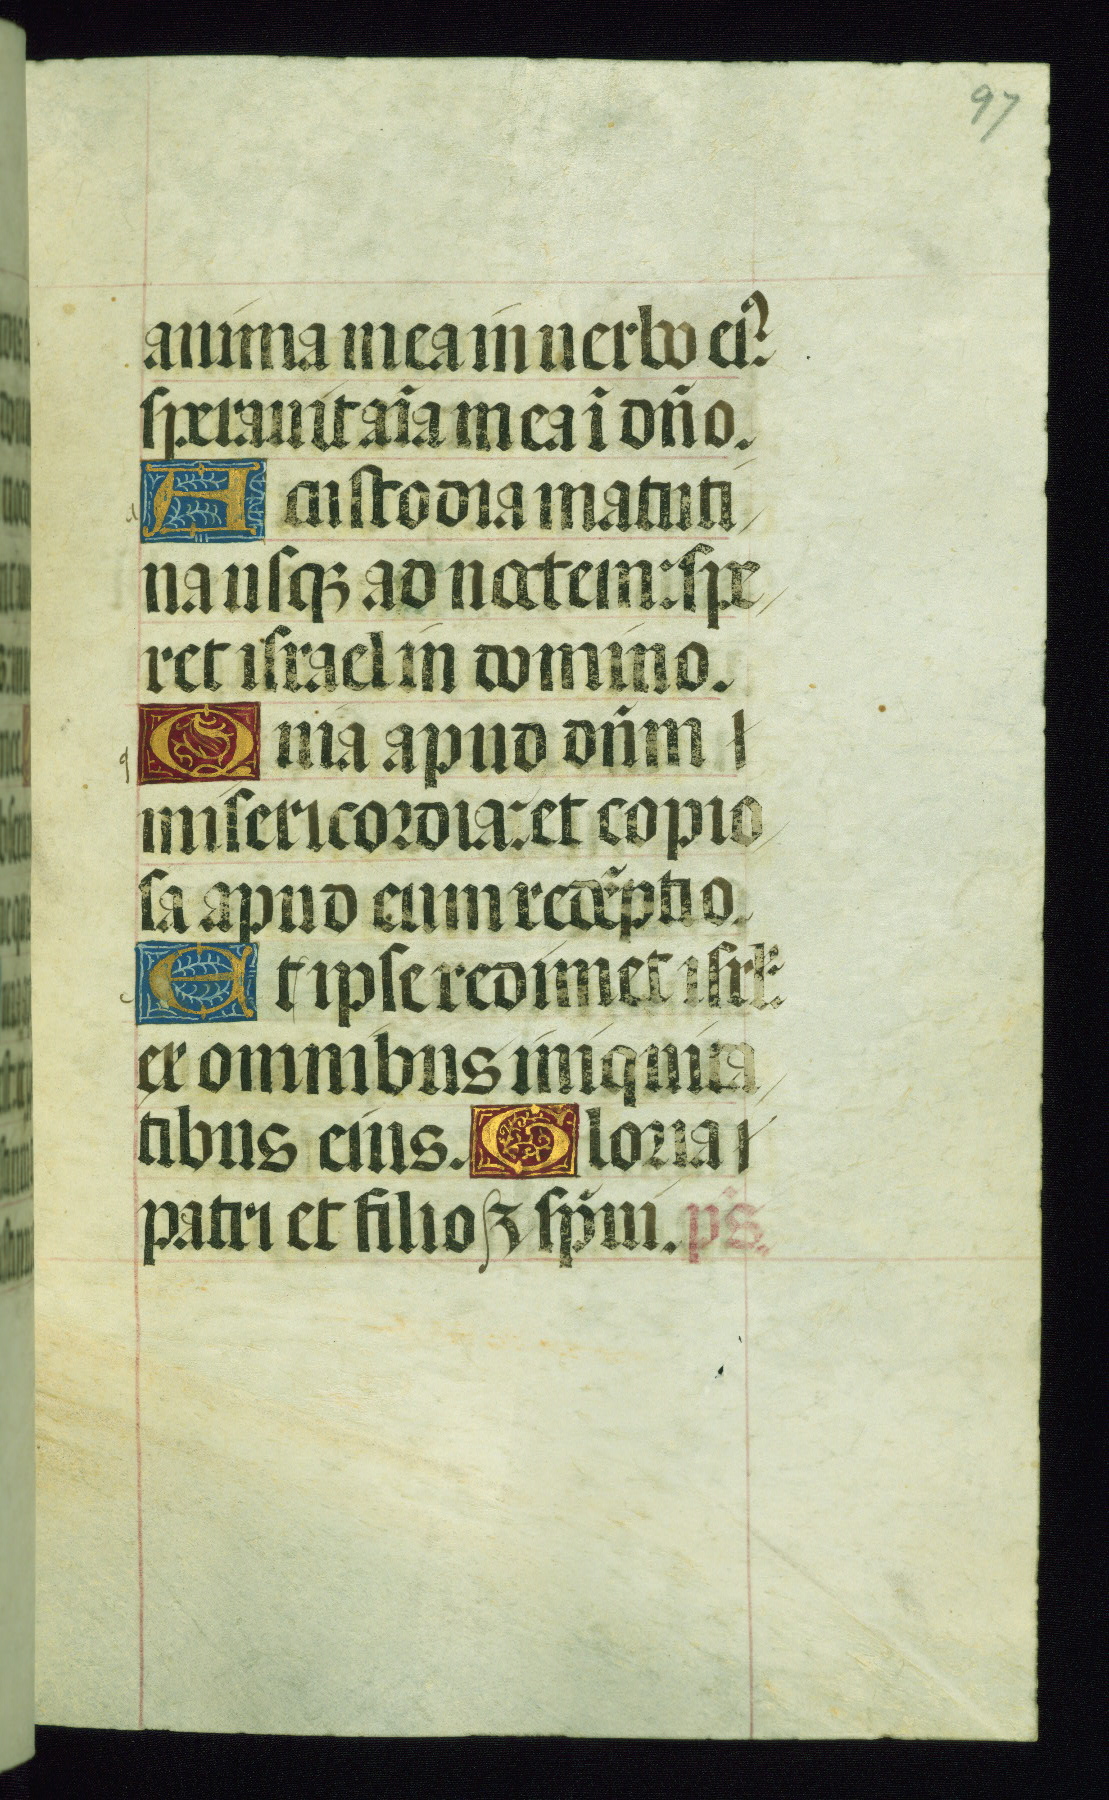 97
anima mea in uerbo ei⁹:
sperauit aīa mea ī dño.
A custodia matuti
na usqꝫ ad noctem: spe
ret israel in domino.
Quia apud dñm
misericordia: et copio
sa apud eum redēptio.
Et ipse redimet isrl̃:
ex omnibus iniquita
tibus eius. Gloria
patri et filio ⁊ sp̃ui. p̃s.